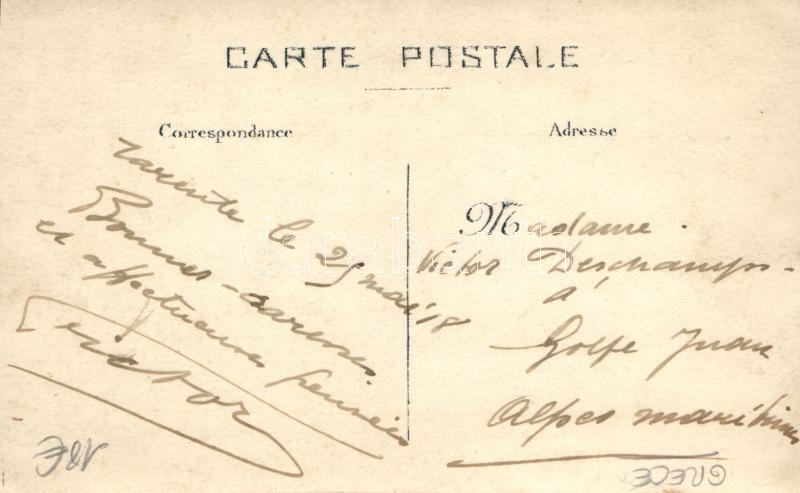 CARTE POSTALE
Correspondance
Adresse
Tarente le 25 mai 18
Bonnes caresses
et affectueuses pensées
Victor
Madame
Victor Deschamps
à
Golfe Juan
Alpes maritimes
18€
GRECE